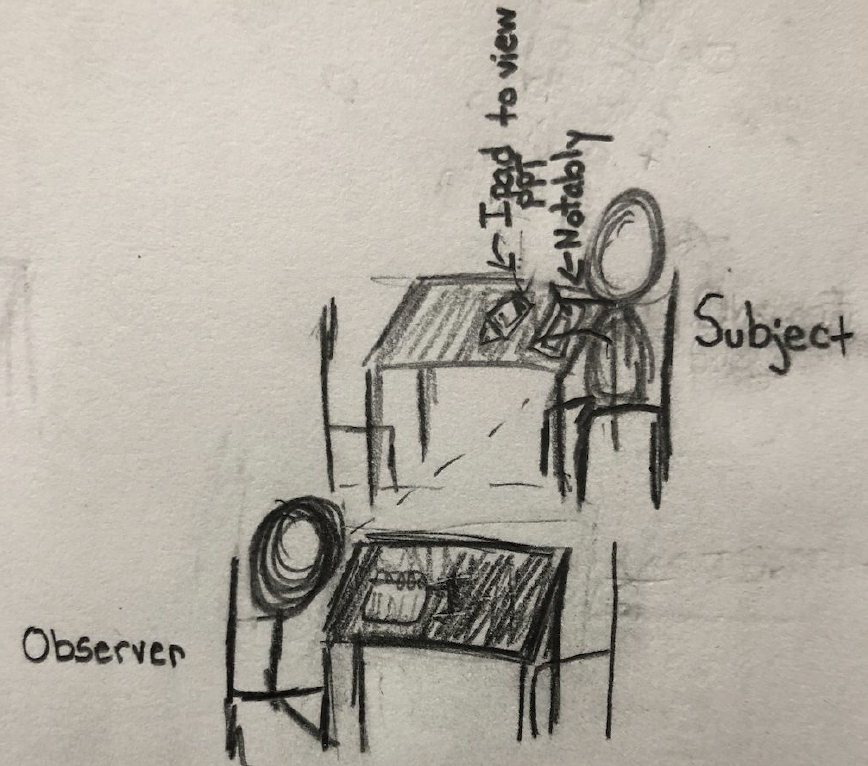 ← Ipad to view
ppt
← Notably
Subject
Observer